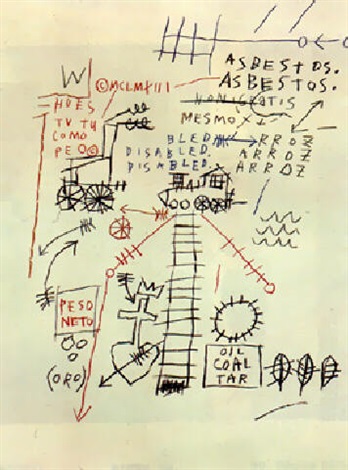 ASBESTOS.
W
©MCLMXIII
ASBESTOS.
HOES
TV TU
COMO
PEO©
MESMO X
BLED
ARROZ
DISABLED.
ARROZ
DISABLED.
ARROZ
PESO
NETO
(ORO)
OIL
COAL
TAR